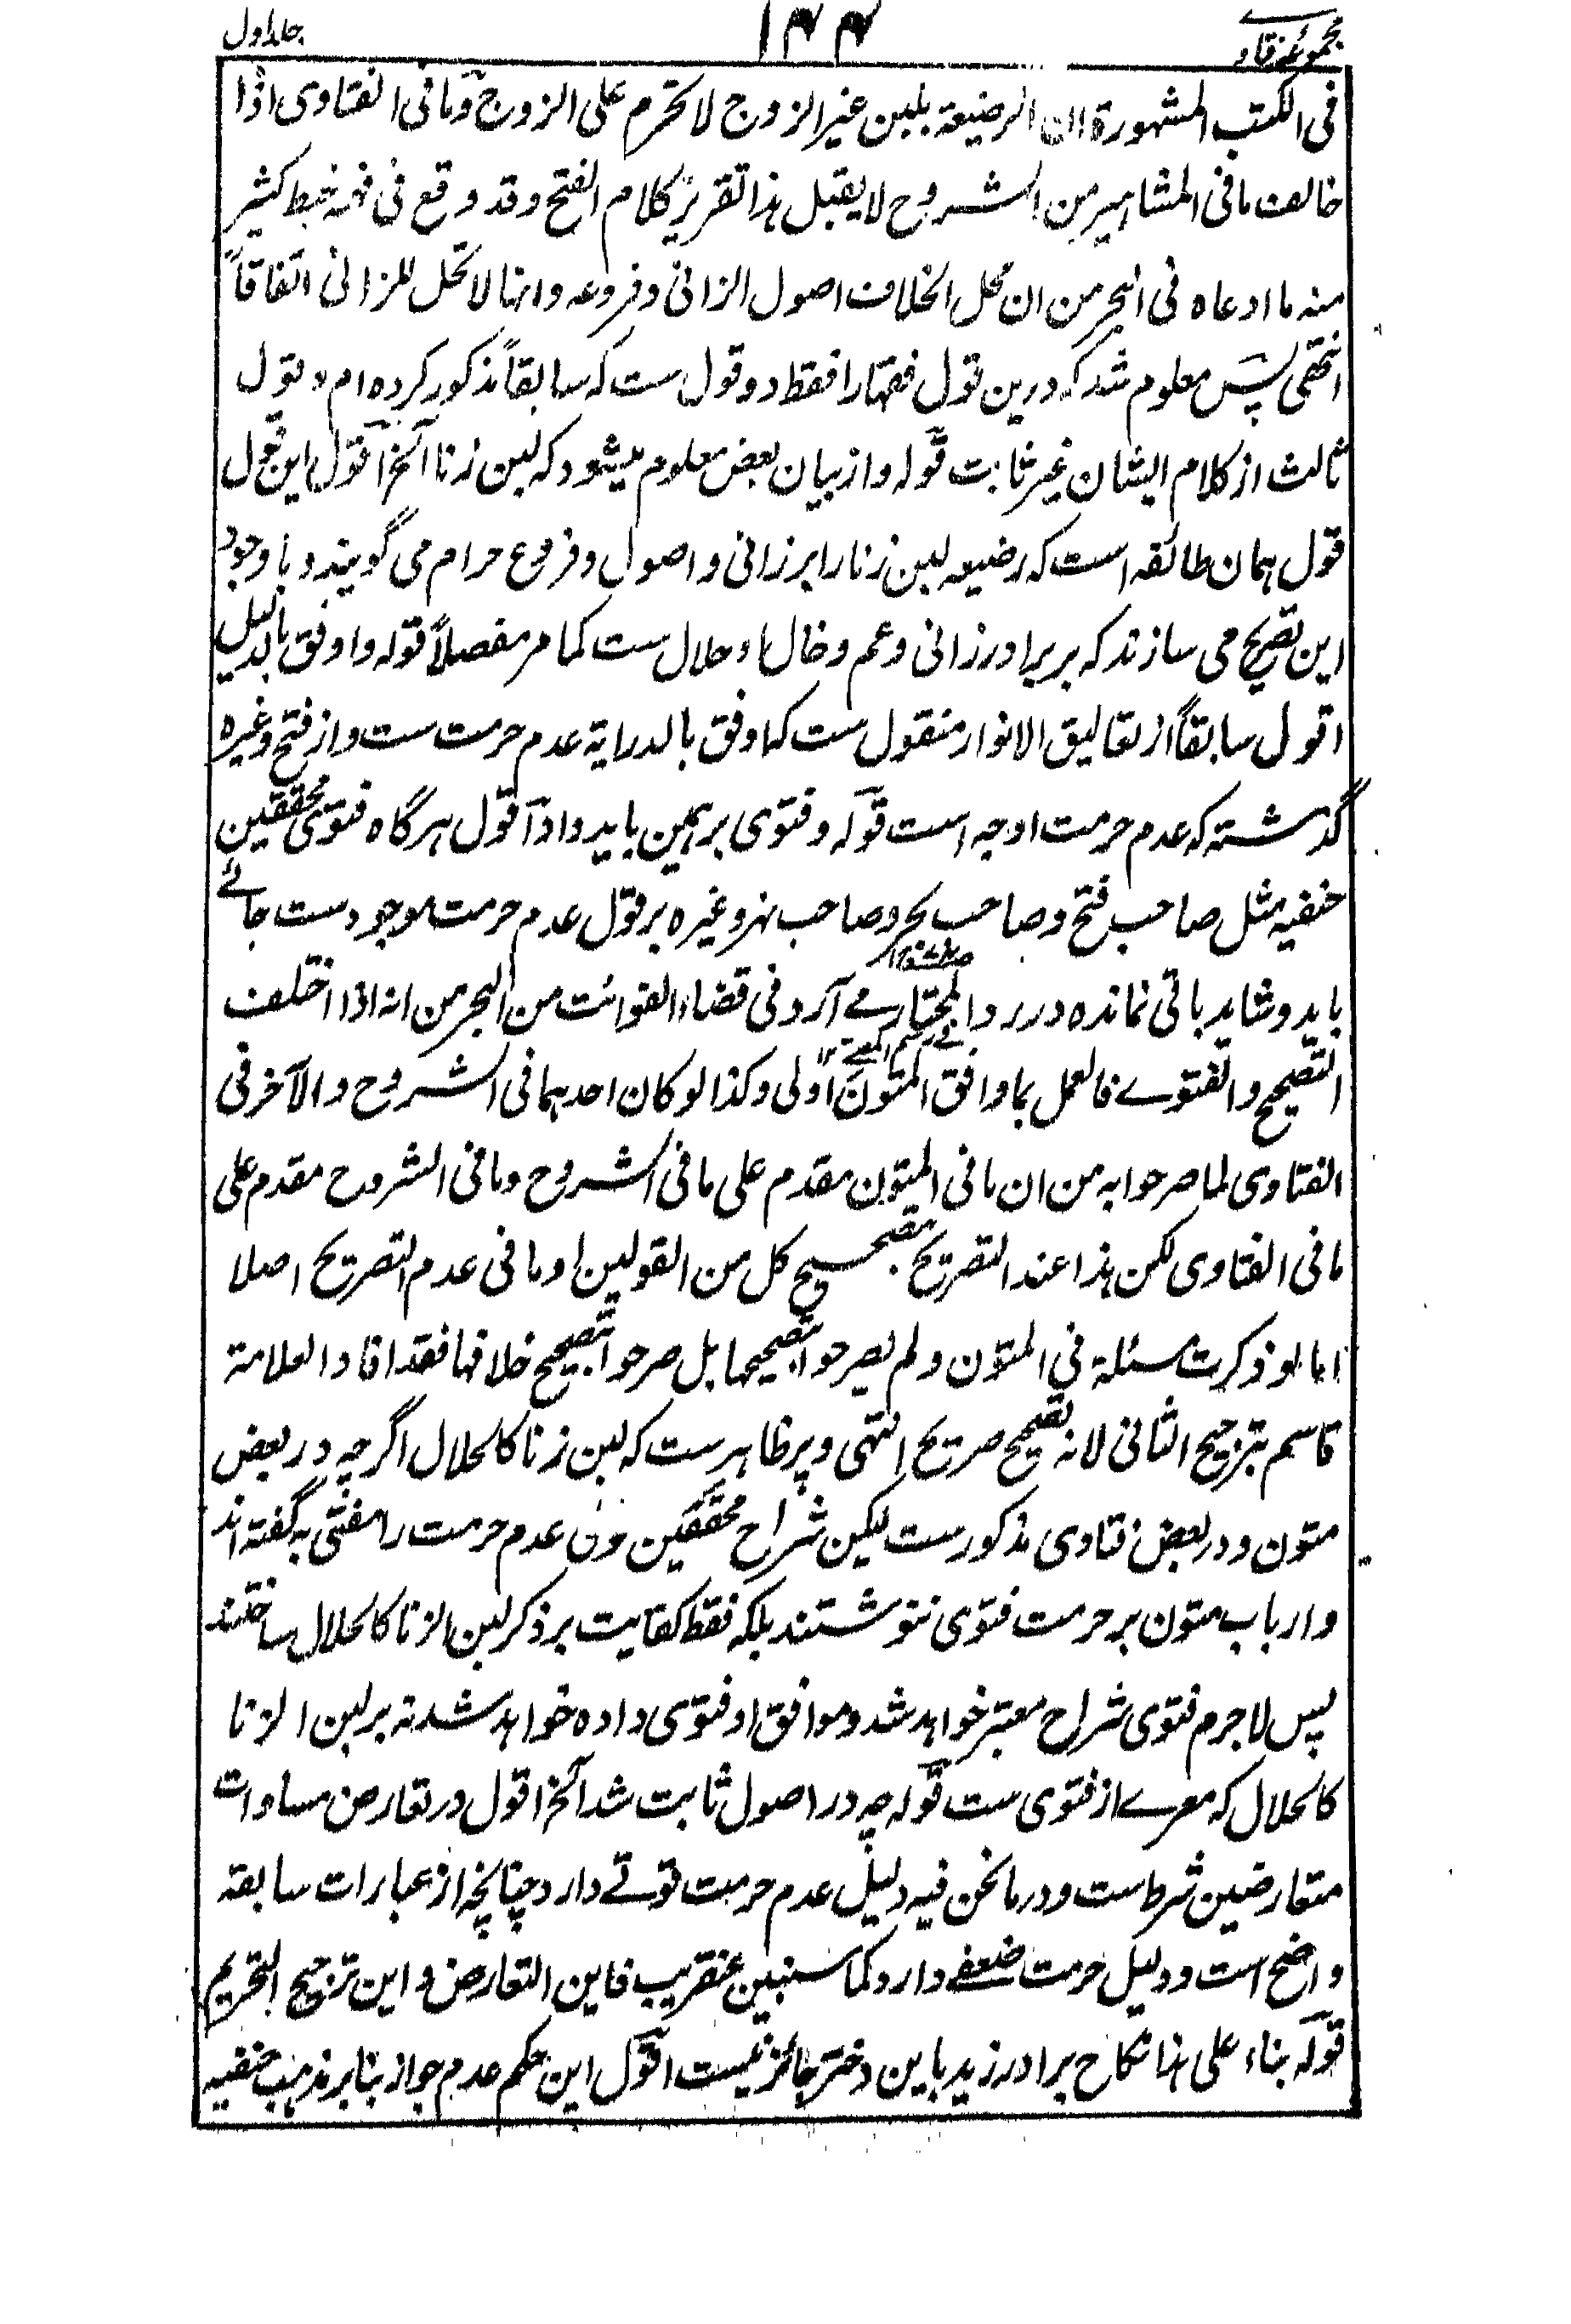 مجموعه فتاوے
۱۴۴
جلد اول
فی الکتب المشهورة ان الرضیعة بلبن غیر الزوج لا تحرم علی الزوج وما فی الفتاوی اذا
خالف ما فی المشاهیر من الشروح لا یقبل هذا تقریر کلام الفتح وقد وقع فی فهمه خبط کثیر
منه ما ادعاه فی البحر من ان محل الخلاف اصول الزانی وفروعه وانها لا تحل للزانی اتفاقاً
انتهی پس معلوم شد که درین قول فقها را فقط دو قول ست که سابقاً مذکور کرده ام و قول
ثالث از کلام ایشان غیر ثابت قوله و از بیان بعض معلوم میشود که لبن زنا الخ اقول این قول
قول همان طائفه است که رضیعه لبن زنا را بر زانی و اصول و فروع حرام می گویند و با وجود
این تصریح می سازند که بر برادر زانی و عم و خال او حلال ست کما مر مفصلاً قوله و اوفق بالدلیل
اقول سابقاً از تعالیق الانوار منقول ست که اوفق بالدرایة عدم حرمت ست و از فتح وغیره
گذشته که عدم حرمت اوجه است قوله و فتوی بر همین باید داد اقول هرگاه فتوی محققین
حنفیه مثل صاحب فتح و صاحب بحر و صاحب نهر وغیره بر قول عدم حرمت موجود ست جائے
باید و شاید باقی نمانده در رد المحتار مے آرد وفی قضاء الفوائت من البحر من انه اذا اختلف
التصحیح والفتوے فالعمل بما وافق المتون اولی وکذا لو کان احدهما فی الشروح والآخر فی
الفتاوی لما صرحوا به من ان ما فی المتون مقدم علی ما فی الشروح وما فی الشروح مقدم علی
ما فی الفتاوی لکن هذا عند التصریح بتصحیح کل من القولین او ما فی عدم التصریح اصلا
اما لو ذکرت مسئلة فی المتون ولم یصرحوا بتصحیحها بل صرحوا بتصحیح خلافها فقد افاد العلامة
قاسم بترجیح الثانی لانه تصحیح صریح انتهی و پر ظاهر ست که لبن زنا کالحلال اگرچه در بعض
متون و در بعض فتاوی مذکور ست لیکن شراح محققین عدم حرمت را مفتی به گفته اند
و ارباب متون بر حرمت فتوی ننوشتند بلکه فقط کفایت بر ذکر لبن الزنا کالحلال ساختند
پس لاجرم فتوی شراح معتبر خواهد شد و موافق او فتوی داده خواهد شد نه بر لبن الزنا
کالحلال که معرے از فتوی ست قوله چه در اصول ثابت شد الخ اقول در تعارض مساوات
متعارضین شرط ست و در ما نحن فیه دلیل عدم حرمت قوتے دارد چنانچه از عبارات سابقه
واضح است و دلیل حرمت ضعفے دارد کما سنبین عنقریب فاین التعارض واین ترجیح التحریم
قوله بناء علی هذا نکاح برادر زید باین دختر جائز نیست اقول این حکم عدم جواز بنا بر مذهب حنفیه